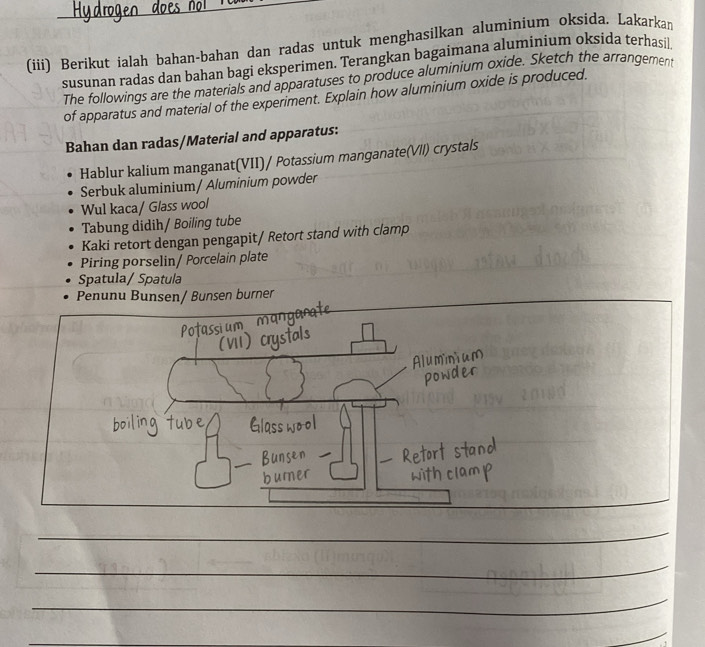 Hydrogen does not
(iii) Berikut ialah bahan-bahan dan radas untuk menghasilkan aluminium oksida. Lakarkan
susunan radas dan bahan bagi eksperimen. Terangkan bagaimana aluminium oksida terhasil.
The followings are the materials and apparatuses to produce aluminium oxide. Sketch the arrangement
of apparatus and material of the experiment. Explain how aluminium oxide is produced.
Bahan dan radas/Material and apparatus:
• Hablur kalium manganat(VII)/ Potassium manganate(VII) crystals
• Serbuk aluminium/ Aluminium powder
• Wul kaca/ Glass wool
• Tabung didih/ Boiling tube
• Kaki retort dengan pengapit/ Retort stand with clamp
• Piring porselin/ Porcelain plate
• Spatula/ Spatula
• Penunu Bunsen/ Bunsen burner
Potassium manganate
(VII) crystals
Aluminium
powder
boiling tube
Glass wool
Bunsen
burner
Retort stand
with clamp